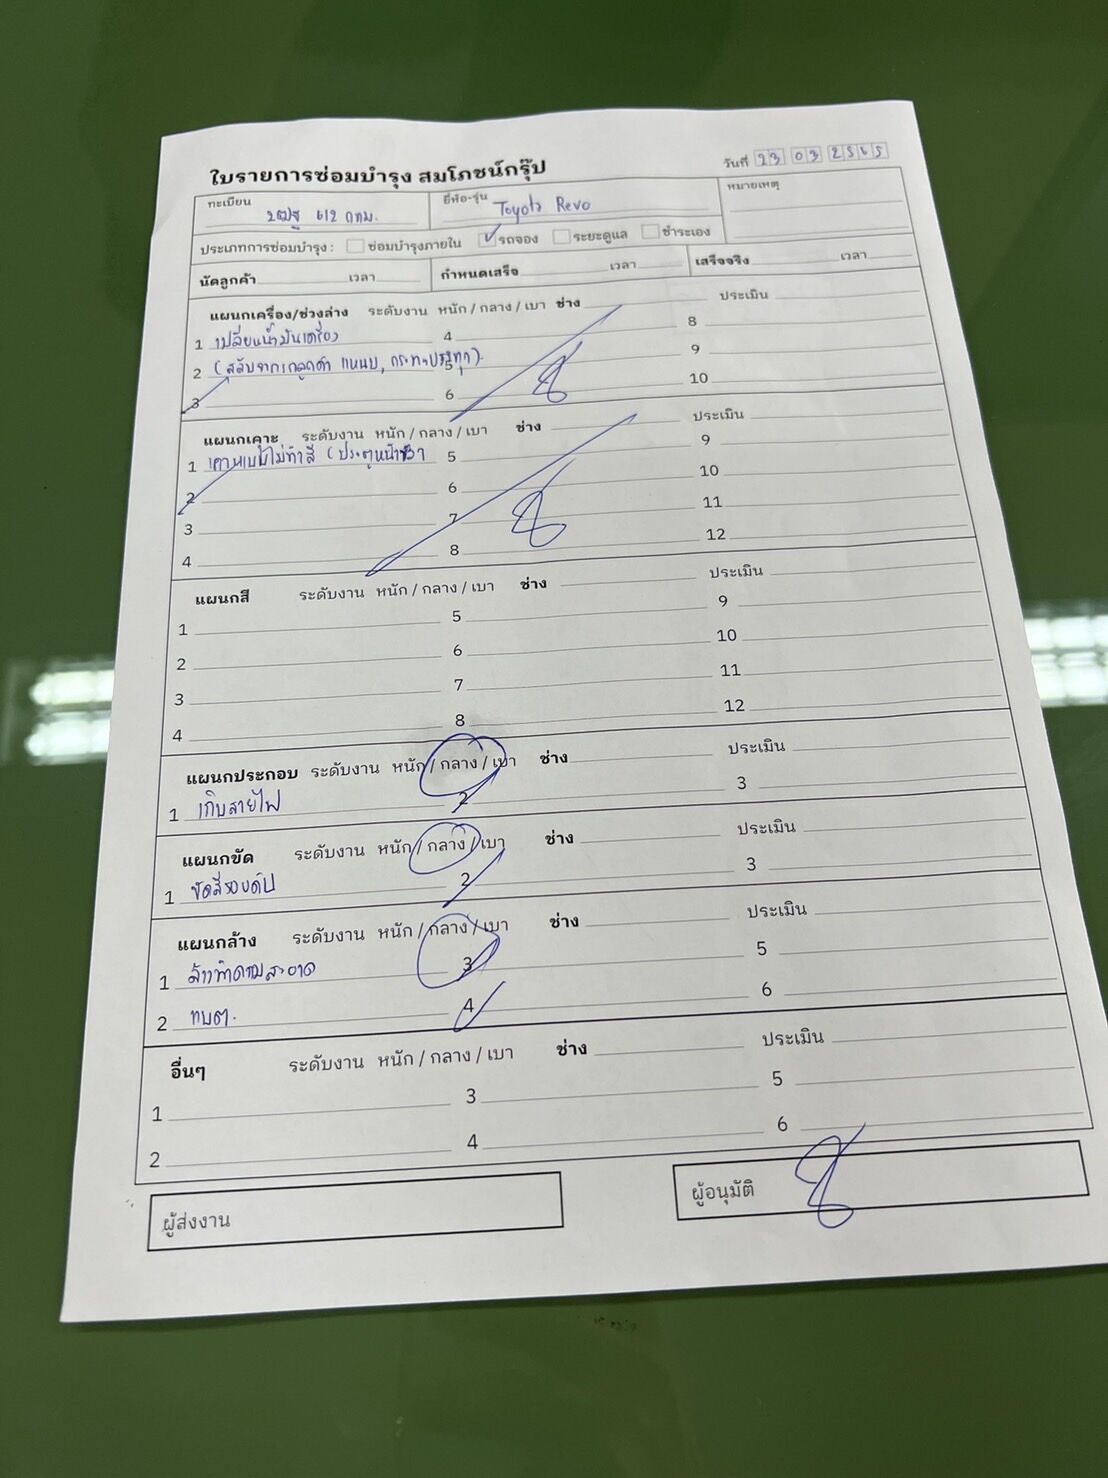 ใบรายการซ่อมบำรุง สมโภชน์กรุ๊ป
วันที่ 23 03 2565
ทะเบียน 2ฒฐ 612 กทม.
ยี่ห้อ-รุ่น Toyota Revo
หมายเหตุ
ประเภทการซ่อมบำรุง : ซ่อมบำรุงภายใน รถจอง ระยะดูแล ชำระเอง
นัดลูกค้า เวลา กำหนดเสร็จ เวลา เสร็จจริง เวลา
แผนกเครื่อง/ช่วงล่าง ระดับงาน หนัก / กลาง / เบา ช่าง ประเมิน
1 เปลี่ยนน้ำมันเครื่อง 4 8
2 (สลับจาก ลูกค้า แหนบ, กระทะบรรทุก). 5 9
3 6 10
แผนกเคาะ ระดับงาน หนัก / กลาง / เบา ช่าง ประเมิน
1 เคาะแบบไม่ทำสี (ประตูหน้า 5 9
2 6 10
3 7 11
4 8 12
แผนกสี ระดับงาน หนัก / กลาง / เบา ช่าง ประเมิน
1 5 9
2 6 10
3 7 11
4 8 12
แผนกประกอบ ระดับงาน หนัก / กลาง / เบา ช่าง ประเมิน
1 เก็บสายไฟ 2 3
แผนกขัด ระดับงาน หนัก / กลาง / เบา ช่าง ประเมิน
1 ขัดสีรอบคัน 2 3
แผนกล้าง ระดับงาน หนัก / กลาง / เบา ช่าง ประเมิน
1 ล้างทำความสะอาด 3 5
2 ทบต. 4 6
อื่นๆ ระดับงาน หนัก / กลาง / เบา ช่าง ประเมิน
1 3 5
2 4 6
ผู้ส่งงาน
ผู้อนุมัติ